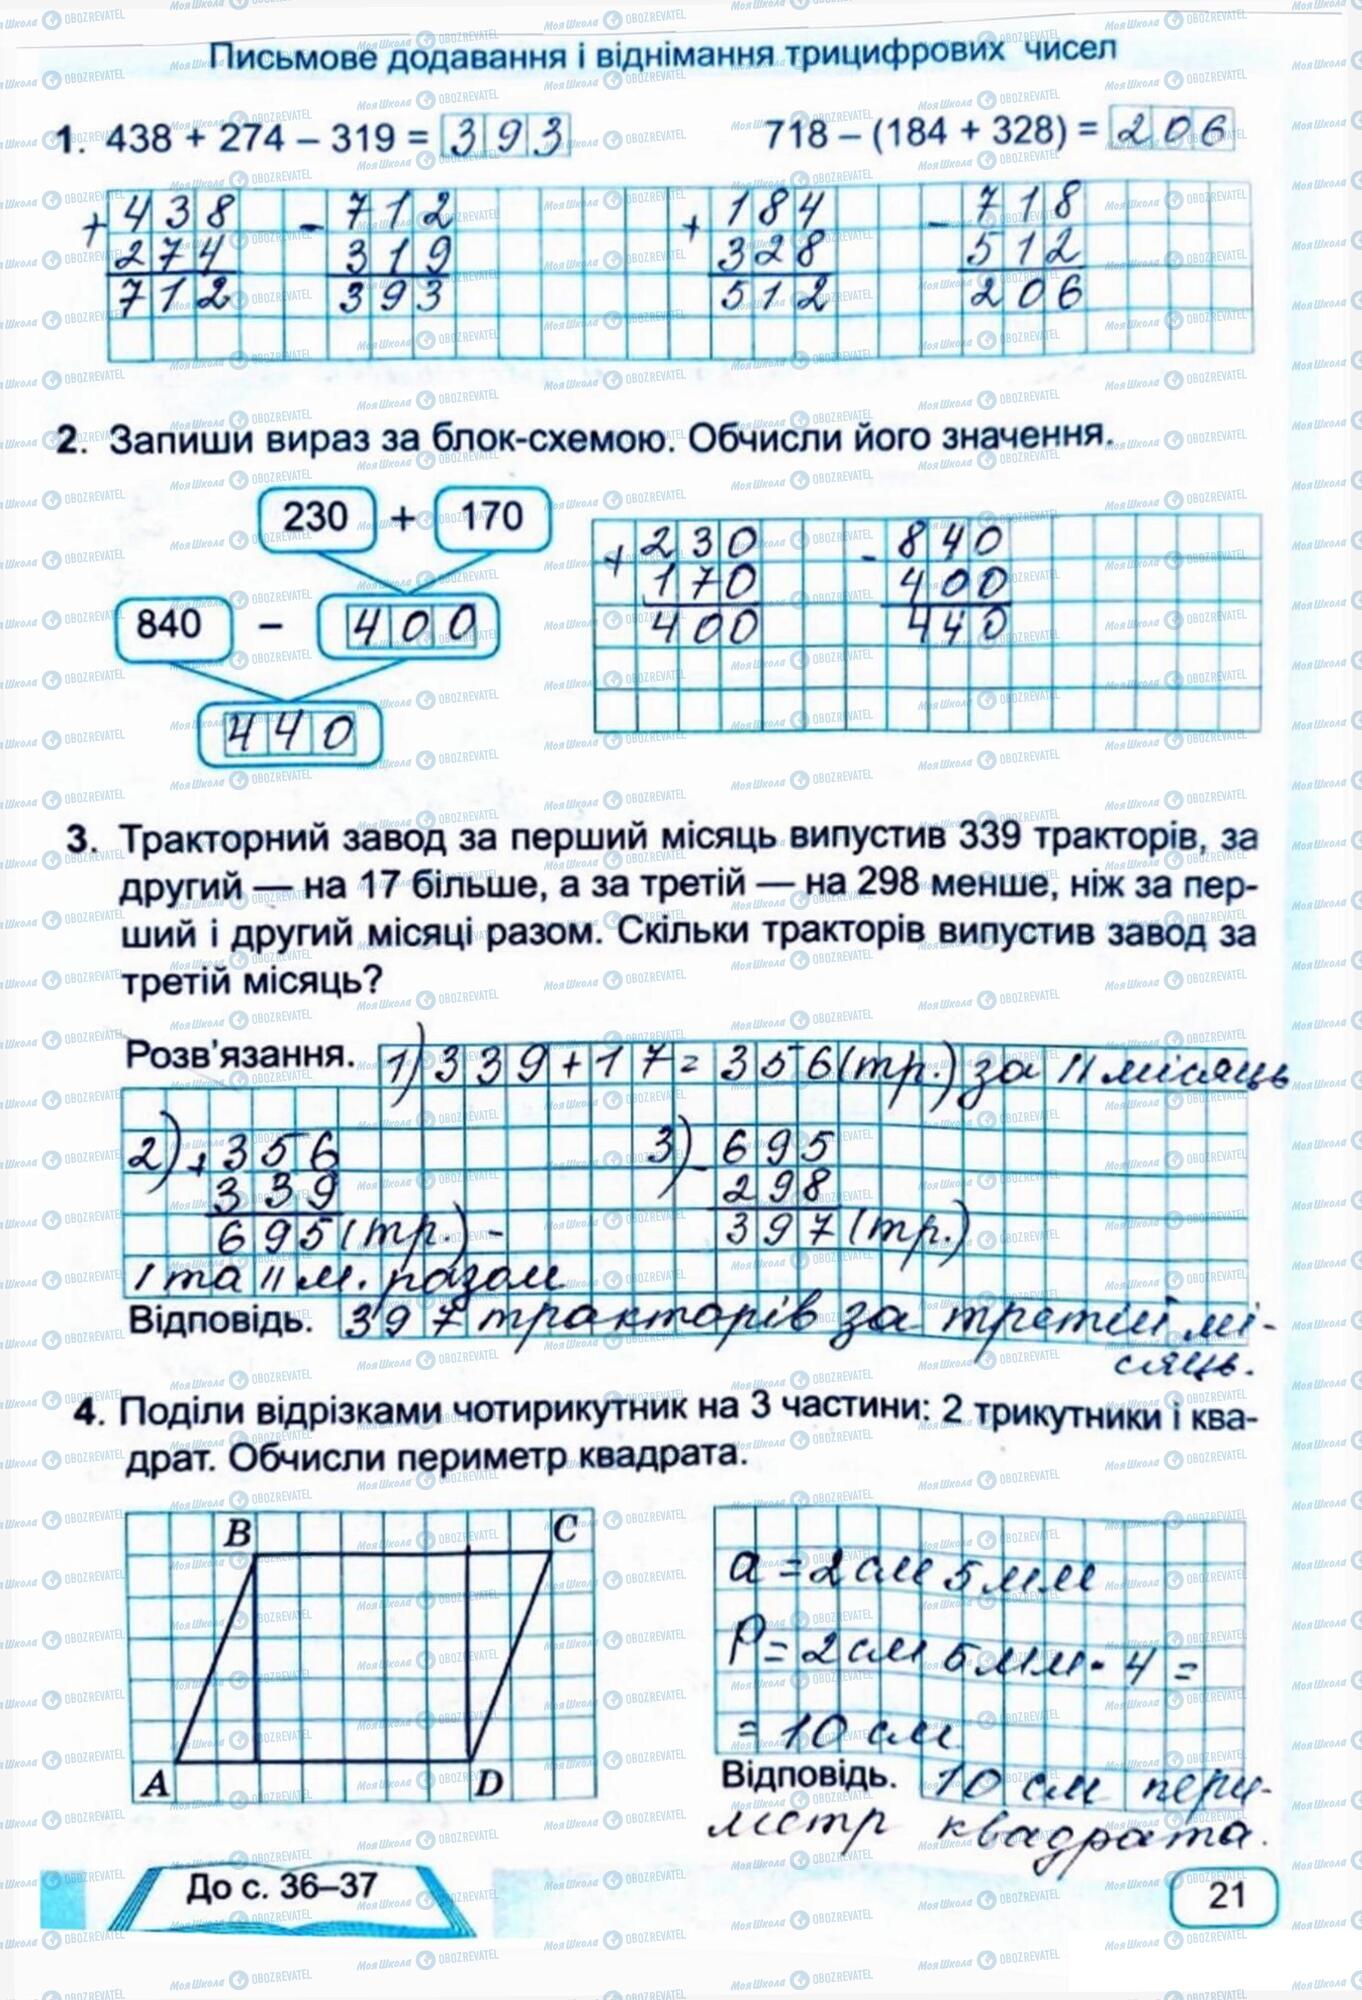 Письмове додавання і віднімання трицифрових чисел
1. 438 + 274 – 319 = 393 718 – (184 + 328) = 206
+ 438 - 712 + 184 - 718
274 319 328 512
712 393 512 206
2. Запиши вираз за блок-схемою. Обчисли його значення.
230 + 170
840 – 400
440
+ 230 - 840
170 400
400 440
3. Тракторний завод за перший місяць випустив 339 тракторів, за
другий — на 17 більше, а за третій — на 298 менше, ніж за пер-
ший і другий місяці разом. Скільки тракторів випустив завод за
третій місяць?
Розв'язання. 1) 339 + 17 = 356 (тр.) за II місяць
2) + 356 3) - 695
339 298
695 (тр.) - 397 (тр.)
I та II м. разом
Відповідь. 397 тракторів за третій мі-
сяць.
4. Поділи відрізками чотирикутник на 3 частини: 2 трикутники і ква-
драт. Обчисли периметр квадрата.
B C
A D
a = 2 см 5 мм
P = 2 см 5 мм · 4 =
= 10 см
Відповідь. 10 см пери-
метр квадрата.
До с. 36–37
21
Моя Школа OBOZREVATEL